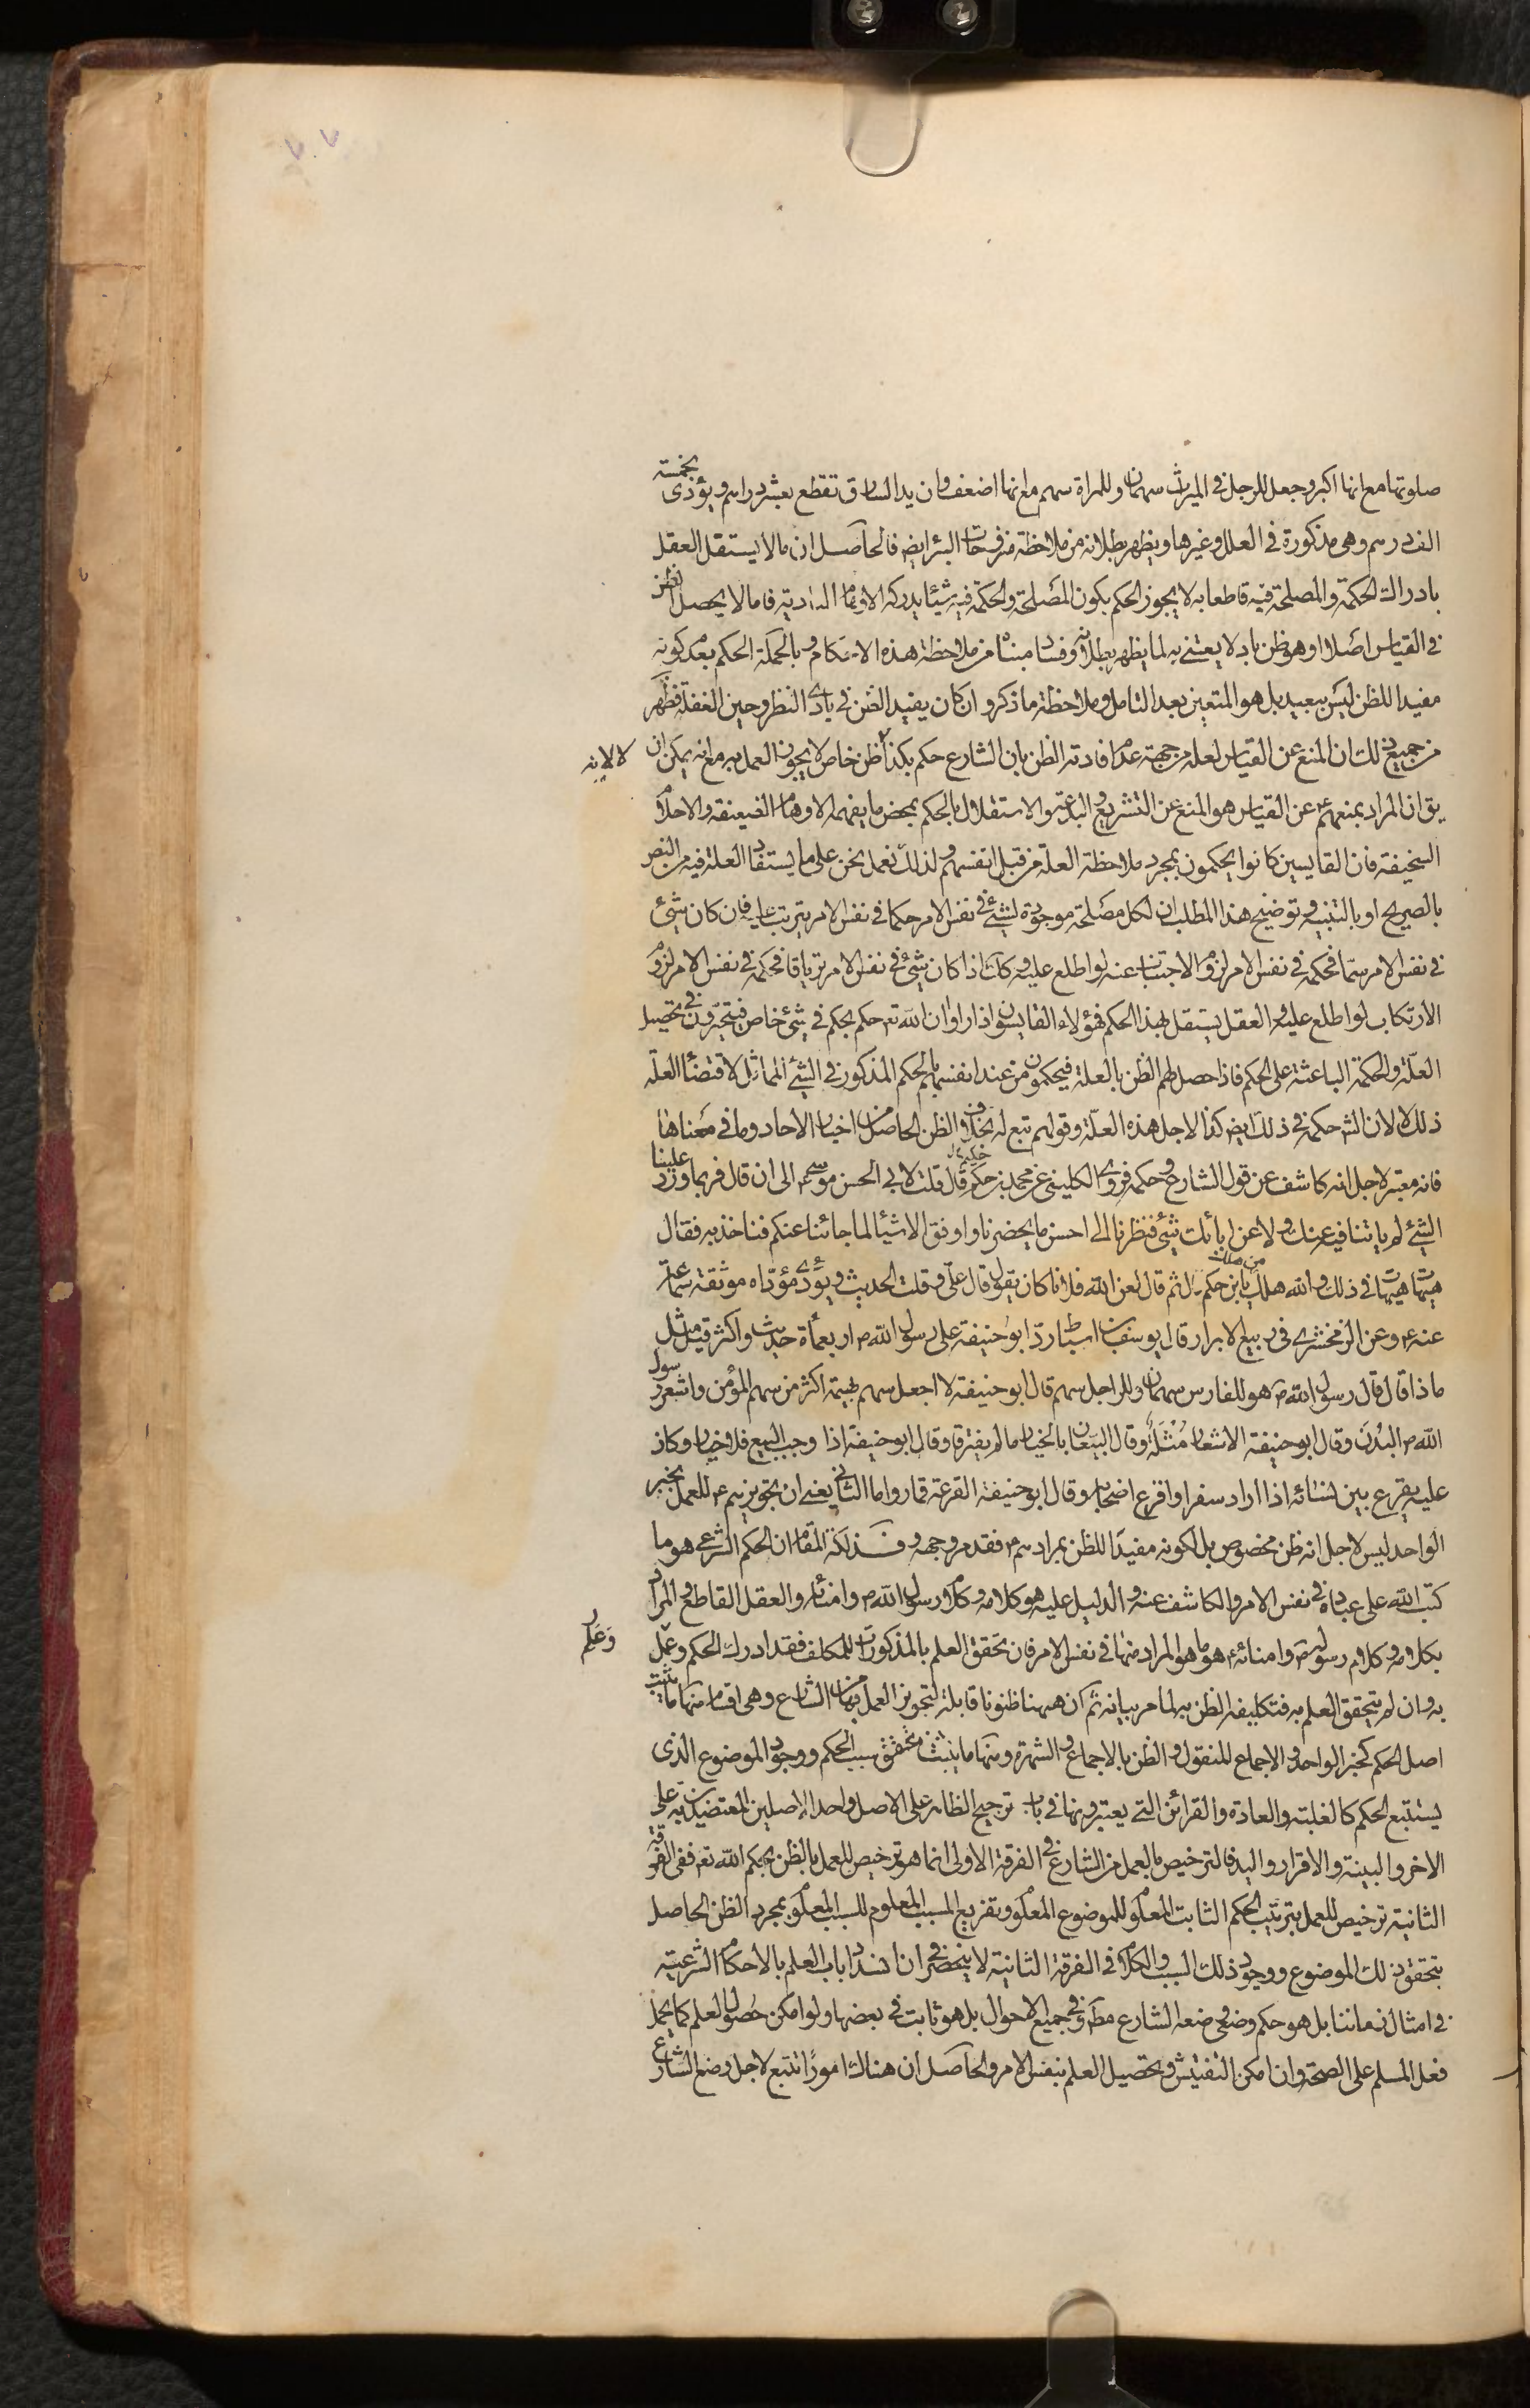 صلوتها مع انها اكبر وجعل للرجل في الميراث سهمان وللمراة سهم مع انها اضعف وان يد السارق تقطع بعشر دراهم ويؤدى بخمسة
الف درهم وهى مذكورة في العلل وغيرها ويظهر بطلانه من ملاحظة منزوحات البئر ايضا فالحاصل ان ما لا يستقل العقل
بادراك الحكمة والمصلحة فيه قاطعا به لا يجوز الحكم بكون المصلحة والحكمة فيه شيئا يدركه الاوهام البادية فاما لا يحصل الظن
في القياس اصلا او هو ظن باد لا يعتنى به لما يظهر بطلانه وفساد مبناه من ملاحظة هذه الاحكام وبالجملة الحكم بعدم كونه
مفيدا للظن ليس ببعيد بل هو المتعين بعد التامل وملاحظة ما ذكر وان كان يفيد الظن في بادى النظر وحين الغفلة فظهر
من جميع ذلك ان المنع عن القياس لعله من جهة عدم افادته الظن بان الشارع حكم بكذا لا لانه ظن خاص لا يجوز العمل به مع انه يمكن ان
يق ان المراد بمنعهم ع عن القياس هو المنع عن التشريع والبدعة والاستقلال بالحكم بمحض ما يفهمه الاوهام الضعيفة والاحلام
السخيفة فان القايسين كانوا يحكمون بمجرد ملاحظة العلة من قبل انفسهم ولذلك نعمل نحن على ما يستفاد العلة فيه من النص
بالصريح او بالتنبيه وتوضيح هذا المطلب ان لكل مصلحة موجودة لشئ في نفس الامر حكما في نفس الامر يترتب عليه فان كان شئ
في نفس الامر سما فحكمه في نفس الامر لزوم الاجتناب عنه لو اطلع عليه وكك اذا كان شئ في نفس الامر ترياقا فحكمه في نفس الامر لزوم
الارتكاب لو اطلع عليه والعقل يستقل بهذا الحكم فهؤلاء القايسون اذا راوا ان الله تع حكم بحكم في شئ خاص فيتحرون في تحصيل
العلة والحكمة الباعثة على الحكم فاذا حصل لهم الظن بالعلة فيحكمون من عند انفسهم بالحكم المذكور في الشئ المماثل لاقتضاء العلة
ذلك لا لان الش حكم في ذلك ايض كذا لاجل هذه العلة وقولهم تبع له بخلاف الظن الحاصل من اخبار الاحاد وما في معناها
فانه معتبر لاجل انه كاشف عن قول الشارع وحكمه فروى الكلينى عن محمد بن حكيم قال قلت لابى الحسن موسى ع الى ان قال فربما ورد علينا
الشئ لم ياتنا فيه عنك ولا عن ابائك شئ فنظرنا الى احسن ما يحضرنا واوفق الاشياء لما جائنا عنكم فناخذ به فقال
هيهات هيهات في ذلك والله هلك من هلك يا بن حكيم قال ثم قال لعن الله فلانا كان يقول قال على وقلت الحديث ويؤدى مؤداه موثقة سماعة
عنه ع وعن الزمخشرى في ربيع الابرار قال يوسف بن اسباط رد ابو حنيفة على رسول الله ص اربعمأة حديث واكثر قيل مثل
ما ذا قال قال رسول الله ص هو للفارس سهمان وللراجل سهم قال ابو حنيفة لا اجعل سهم بهيمة اكثر من سهم المؤمن واشعر رسول
الله ص البدن وقال ابو حنيفة الاشعار مثلة وقال البيعان بالخيار ما لم يفترقا وقال ابو حنيفة اذا وجب البيع فلا خيار وكان
عليه يقرع بين نسائه اذا اراد سفرا واقرع اصحابه وقال ابو حنيفة القرعة قمار واما الثانى يعنى ان تجويزهم ع للعمل بخبر
الواحد ليس لاجل انه ظن مخصوص بل لكونه مفيدا للظن بمرادهم ع فقد مر وجهه وفذلكة المقام ان الحكم الشرعى هو ما
كتب الله على عباده في نفس الامر والكاشف عنه والدليل عليه هو كلامه وكلام رسول الله ص وامنائه والعقل القاطع والمراد
بكلامه وكلام رسوله ص وامنائه ع هو ما هو المراد منها في نفس الامر فان تحقق العلم بالمذكورات للمكلف فقد ادرك الحكم وعلم وعمل
به وان لم يتحقق العلم به فتكليفه الظن به لما مر بيانه ثم ان ههنا ظنونا قابلة لتجويز العمل بها من الشارع وهى اقسام منها ما يثبت
اصل الحكم كخبر الواحد والاجماع المنقول والظن بالاجماع والشهرة ومنها ما يثبت تحقق سبب الحكم ووجود الموضوع الذى
يستتبع الحكم كالغلبة والعادة والقرائن التى يعتبرونها في باب ترجيح الظاهر على الاصل واحد الاصلين المعتضدين به على
الاخر والبينة والاقرار واليد فالترخيص بالعمل من الشارع في الفرقة الاولى انما هو ترخيص للعمل بالظن بحكم الله تع ففى الفرقة
الثانية ترخيص للعمل بترتيب الحكم الثابت المعلوم للموضوع المعلوم وتفريع المسبب المعلوم للسبب المعلوم بمجرد الظن الحاصل
بتحقق ذلك الموضوع ووجود ذلك السبب والكلام في الفرقة الثانية لا ينحصر في ان انسداد باب العلم بالاحكام الشرعية
في امثال زماننا بل هو حكم وضعى وضعه الشارع مط وفي جميع الاحوال بل هو ثابت في بعضها ولو امكن حصول العلم كما يحمل
فعل المسلم على الصحة وان امكن التفتيش وتحصيل العلم بنفس الامر والحاصل ان هناك امورا تتبع لاجل وضع الشارع